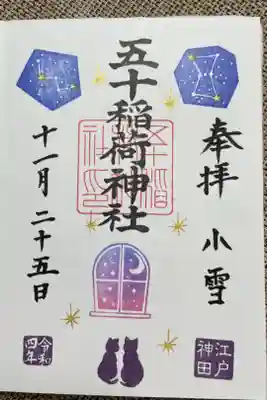 奉拝 小雪
五十稲荷神社
十一月二十五日
江戸神田
令和四年